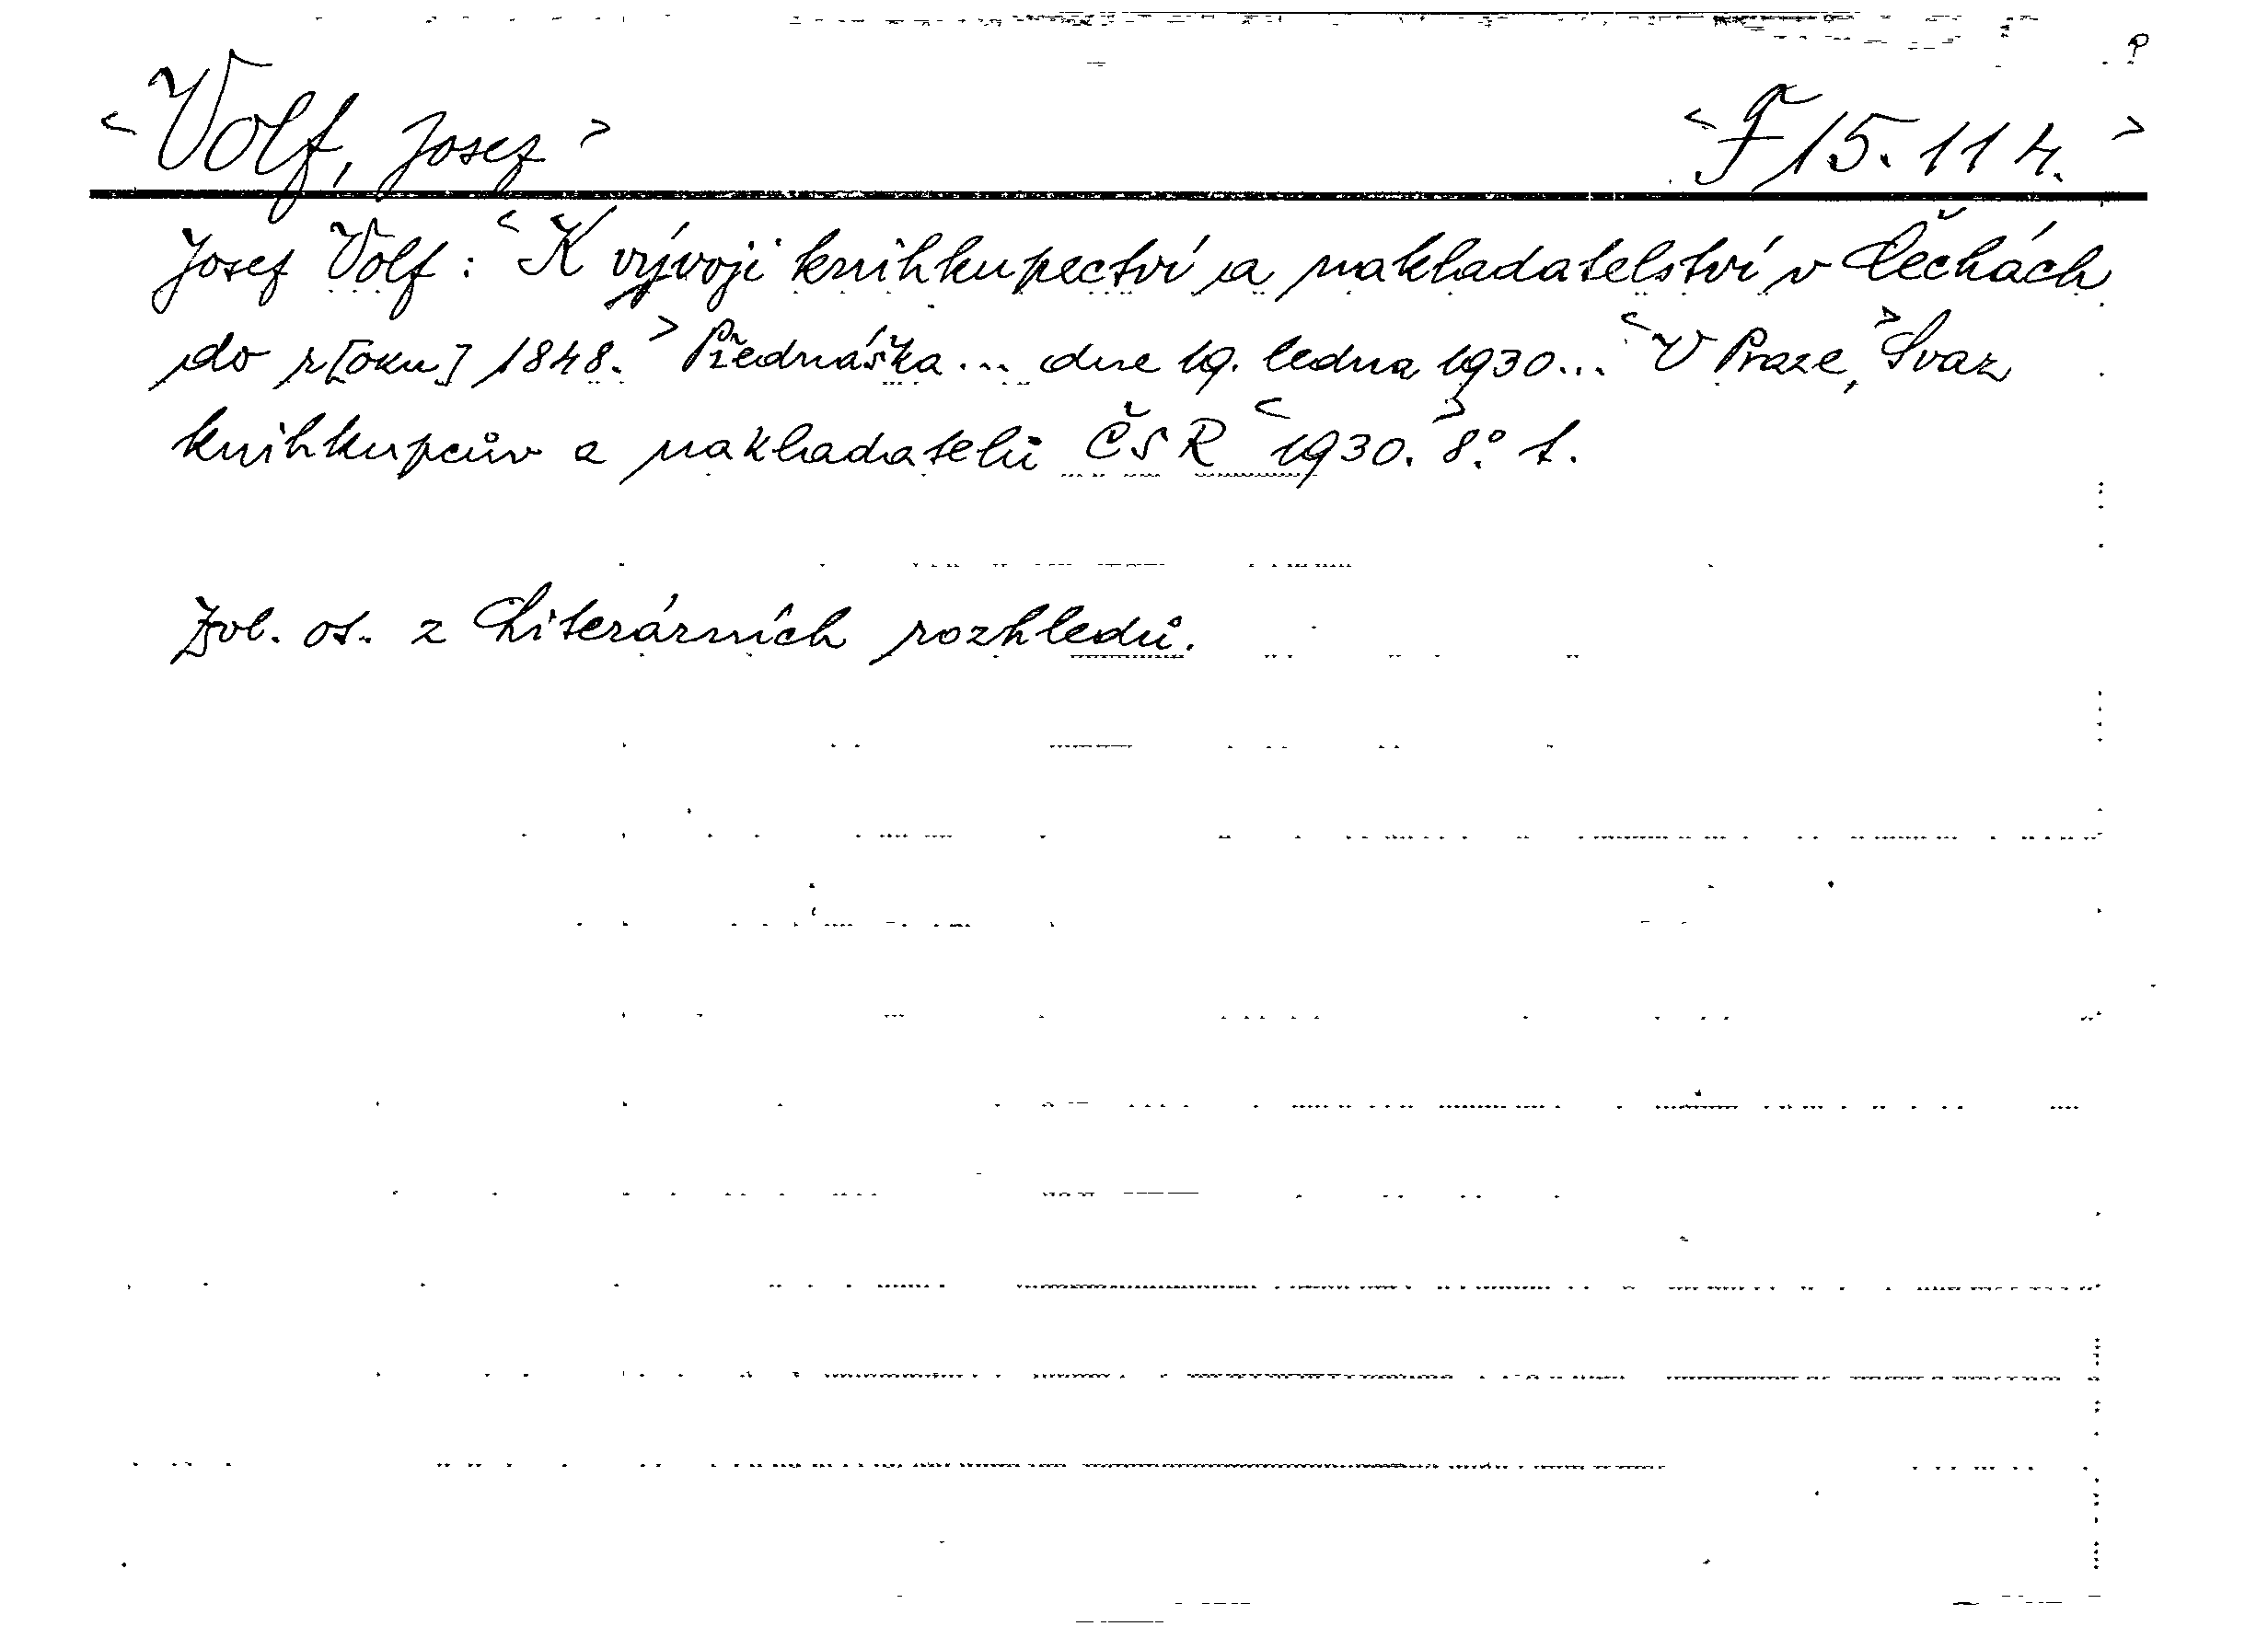 P
<Volf, Josef> <F 15.114.>
Josef Volf: <K vývoji knihkupectví a nakladatelství v Čechách
do r[oku] 1848.> Přednáška... dne 19. ledna 1930... <V Praze,> Svaz
knihkupcův a nakladatelů ČSR <1930.> 8.° 1.
Zvl. ot. z Literárních rozhledů.